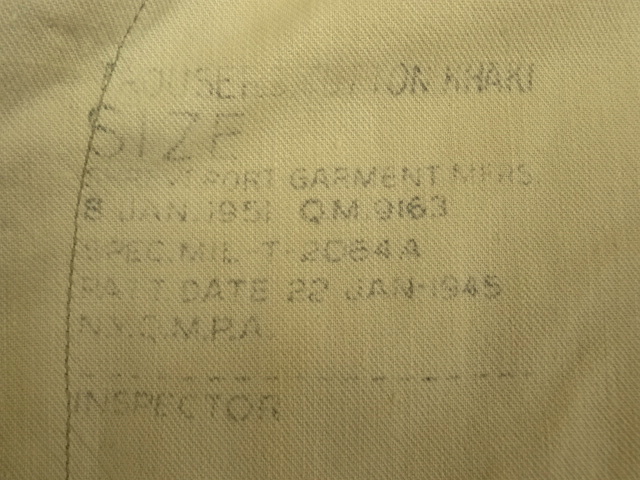 TROUSERS, COTTON KHAKI
SIZE
SHREVEPORT GARMENT MFRS.
8 JAN. 1951 Q.M. 9163
SPEC. MIL-T-2064A
PATT. DATE 22 JAN-1945
N.Y.Q.M.P.A.
INSPECTOR